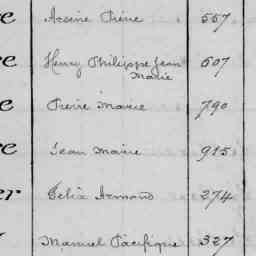 re Arsène Pierre 557
re Henry Philippe Jean 607
Marie
e Pierre Marie 790
re Jean Marie 915
er Felix Armand 274
Manuel Pacifique 327